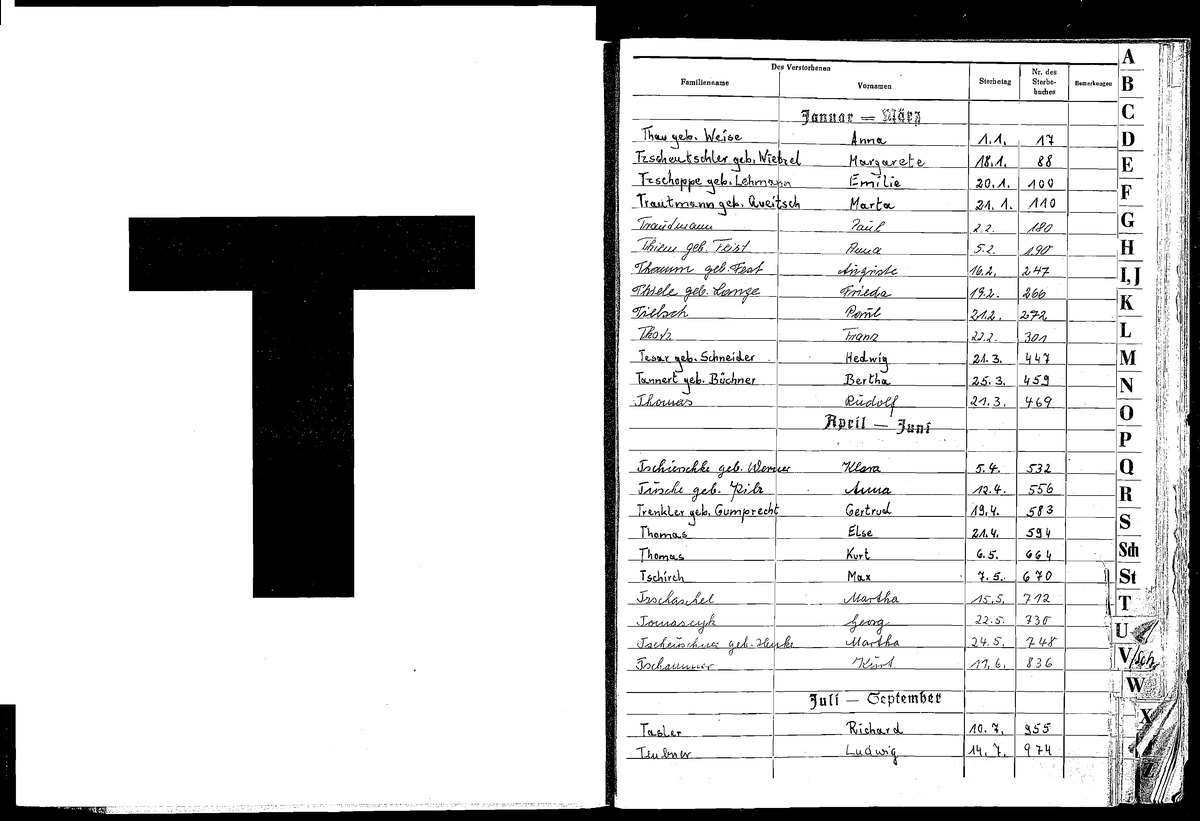 T
Des Verstorbenen
Familienname Vornamen Sterbetag Nr. des Sterbe-buches Bemerkungen
Januar — März
Thau geb. Weise Anna 1.1. 17
Tzscheutschler geb. Wietzel Margarete 18.1. 88
Tzschoppe geb. Lehmann Emilie 20.1. 100
Trautmann geb. Queitsch Marta 21.1. 110
Traudmann Paul 2.2. 180
Thiem geb. Feist Anna 5.2. 190
Thamm geb. Fest Auguste 16.2. 247
Thiele geb. Lange Frieda 19.2. 266
Tietsch Paul 21.2. 272
Franz 22.2. 301
Tesar geb. Schneider Hedwig 21.3. 447
Tannert geb. Büchner Bertha 25.3. 459
Thomas Rudolf 21.3. 469
April — Juni
Tschirschke geb. Werner Klara 5.4. 532
geb. Pilz Anna 12.4. 556
Trenkler geb. Gumprecht Gertrud 19.4. 583
Thomas Else 21.4. 594
Thomas Kurt 6.5. 664
Tschirch Max 7.5. 670
Tzschaschel Martha 15.5. 712
Tomascyk Georg 22.5. 730
geb. Martha 24.5. 748
Tschammer Kurt 11.6. 836
Juli — September
Tasler Richard 10.7. 955
Teubner Ludwig 14.7. 974
A
B
C
D
E
F
G
H
I, J
K
L
M
N
O
P
Q
R
S
Sch
St
T
U
V/Sch
W
X
Z